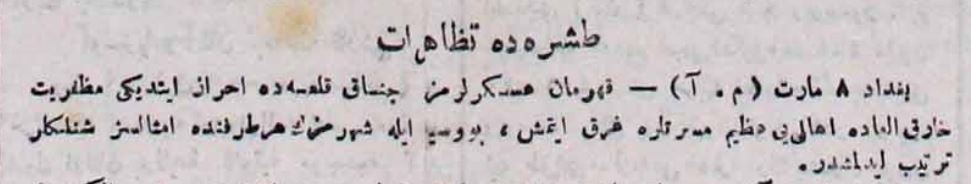 طشره‌ده تظاهرات
بغداد ۸ مارت (م. آ) — قهرمان عسکرلرمز جناق قلعه‌ده احراز ایتدیکی مظفریت
خارق العاده اهالی‌یی عظیم مسرتلره غرق ایتمش، بووسیله ایله شهرمزك هر طرفنده امثالسز شنلکلر
ترتیب ایدلمشدر.